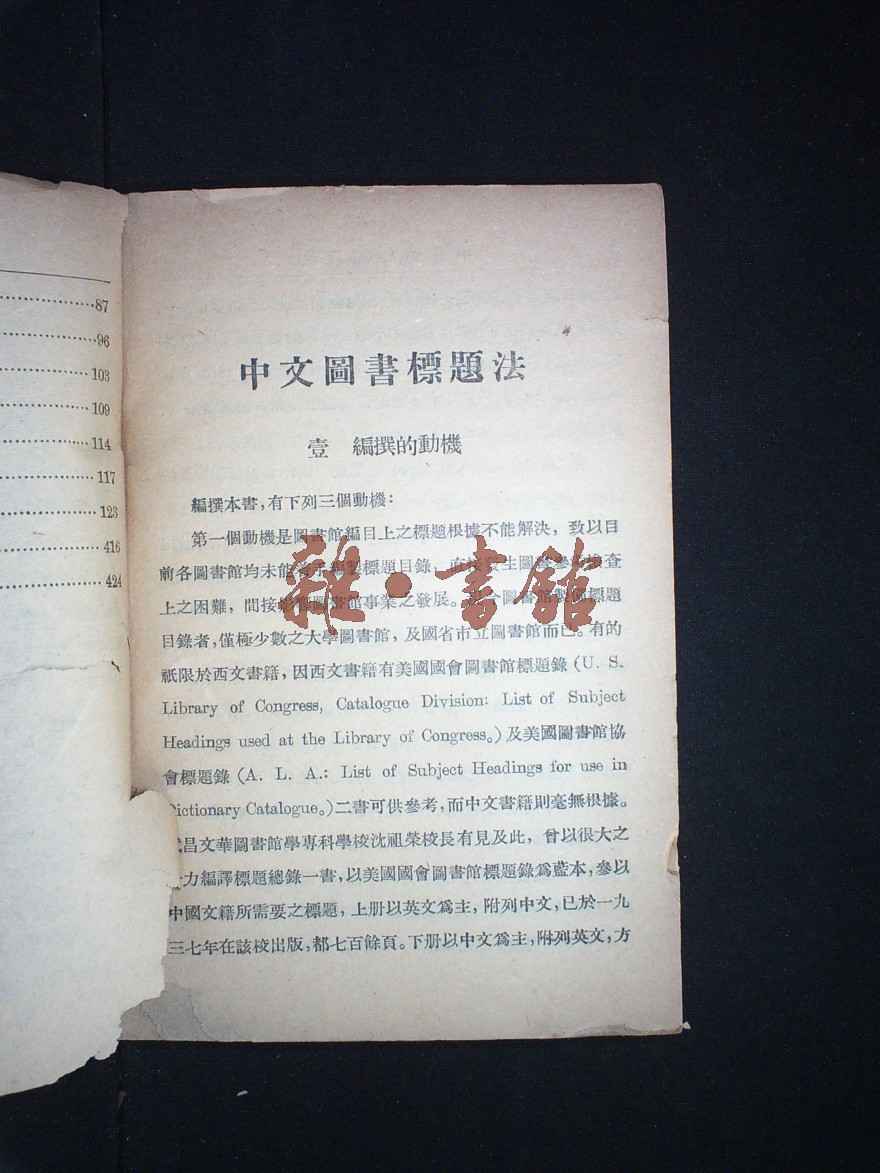 87
96
103
109
114
117
123
416
424
中文圖書標題法
壹 編撰的動機
編撰本書,有下列三個動機:
第一個動機是圖書館編目上之標題根據不能解決,致以目
前各圖書館均未能着手編製標題目錄,直接發生圖書參考檢查
上之困難,間接影響圖書館事業之發展。今圖書館製備標題
目錄者,僅極少數之大學圖書館,及國省市立圖書館而已。有的
祇限於西文書籍,因西文書籍有美國國會圖書館標題錄(U. S.
Library of Congress, Catalogue Division: List of Subject
Headings used at the Library of Congress。)及美國圖書館協
會標題錄(A. L. A.: List of Subject Headings for use in
Dictionary Catalogue。)二書可供參考,而中文書籍則毫無根據。
武昌文華圖書館學專科學校沈祖榮校長有見及此,曾以很大之
力編譯標題總錄一書,以美國國會圖書館標題錄爲藍本,參以
中國文籍所需要之標題,上册以英文爲主,附列中文,已於一九
三七年在該校出版,都七百餘頁。下册以中文爲主,附列英文,方
雜·書館